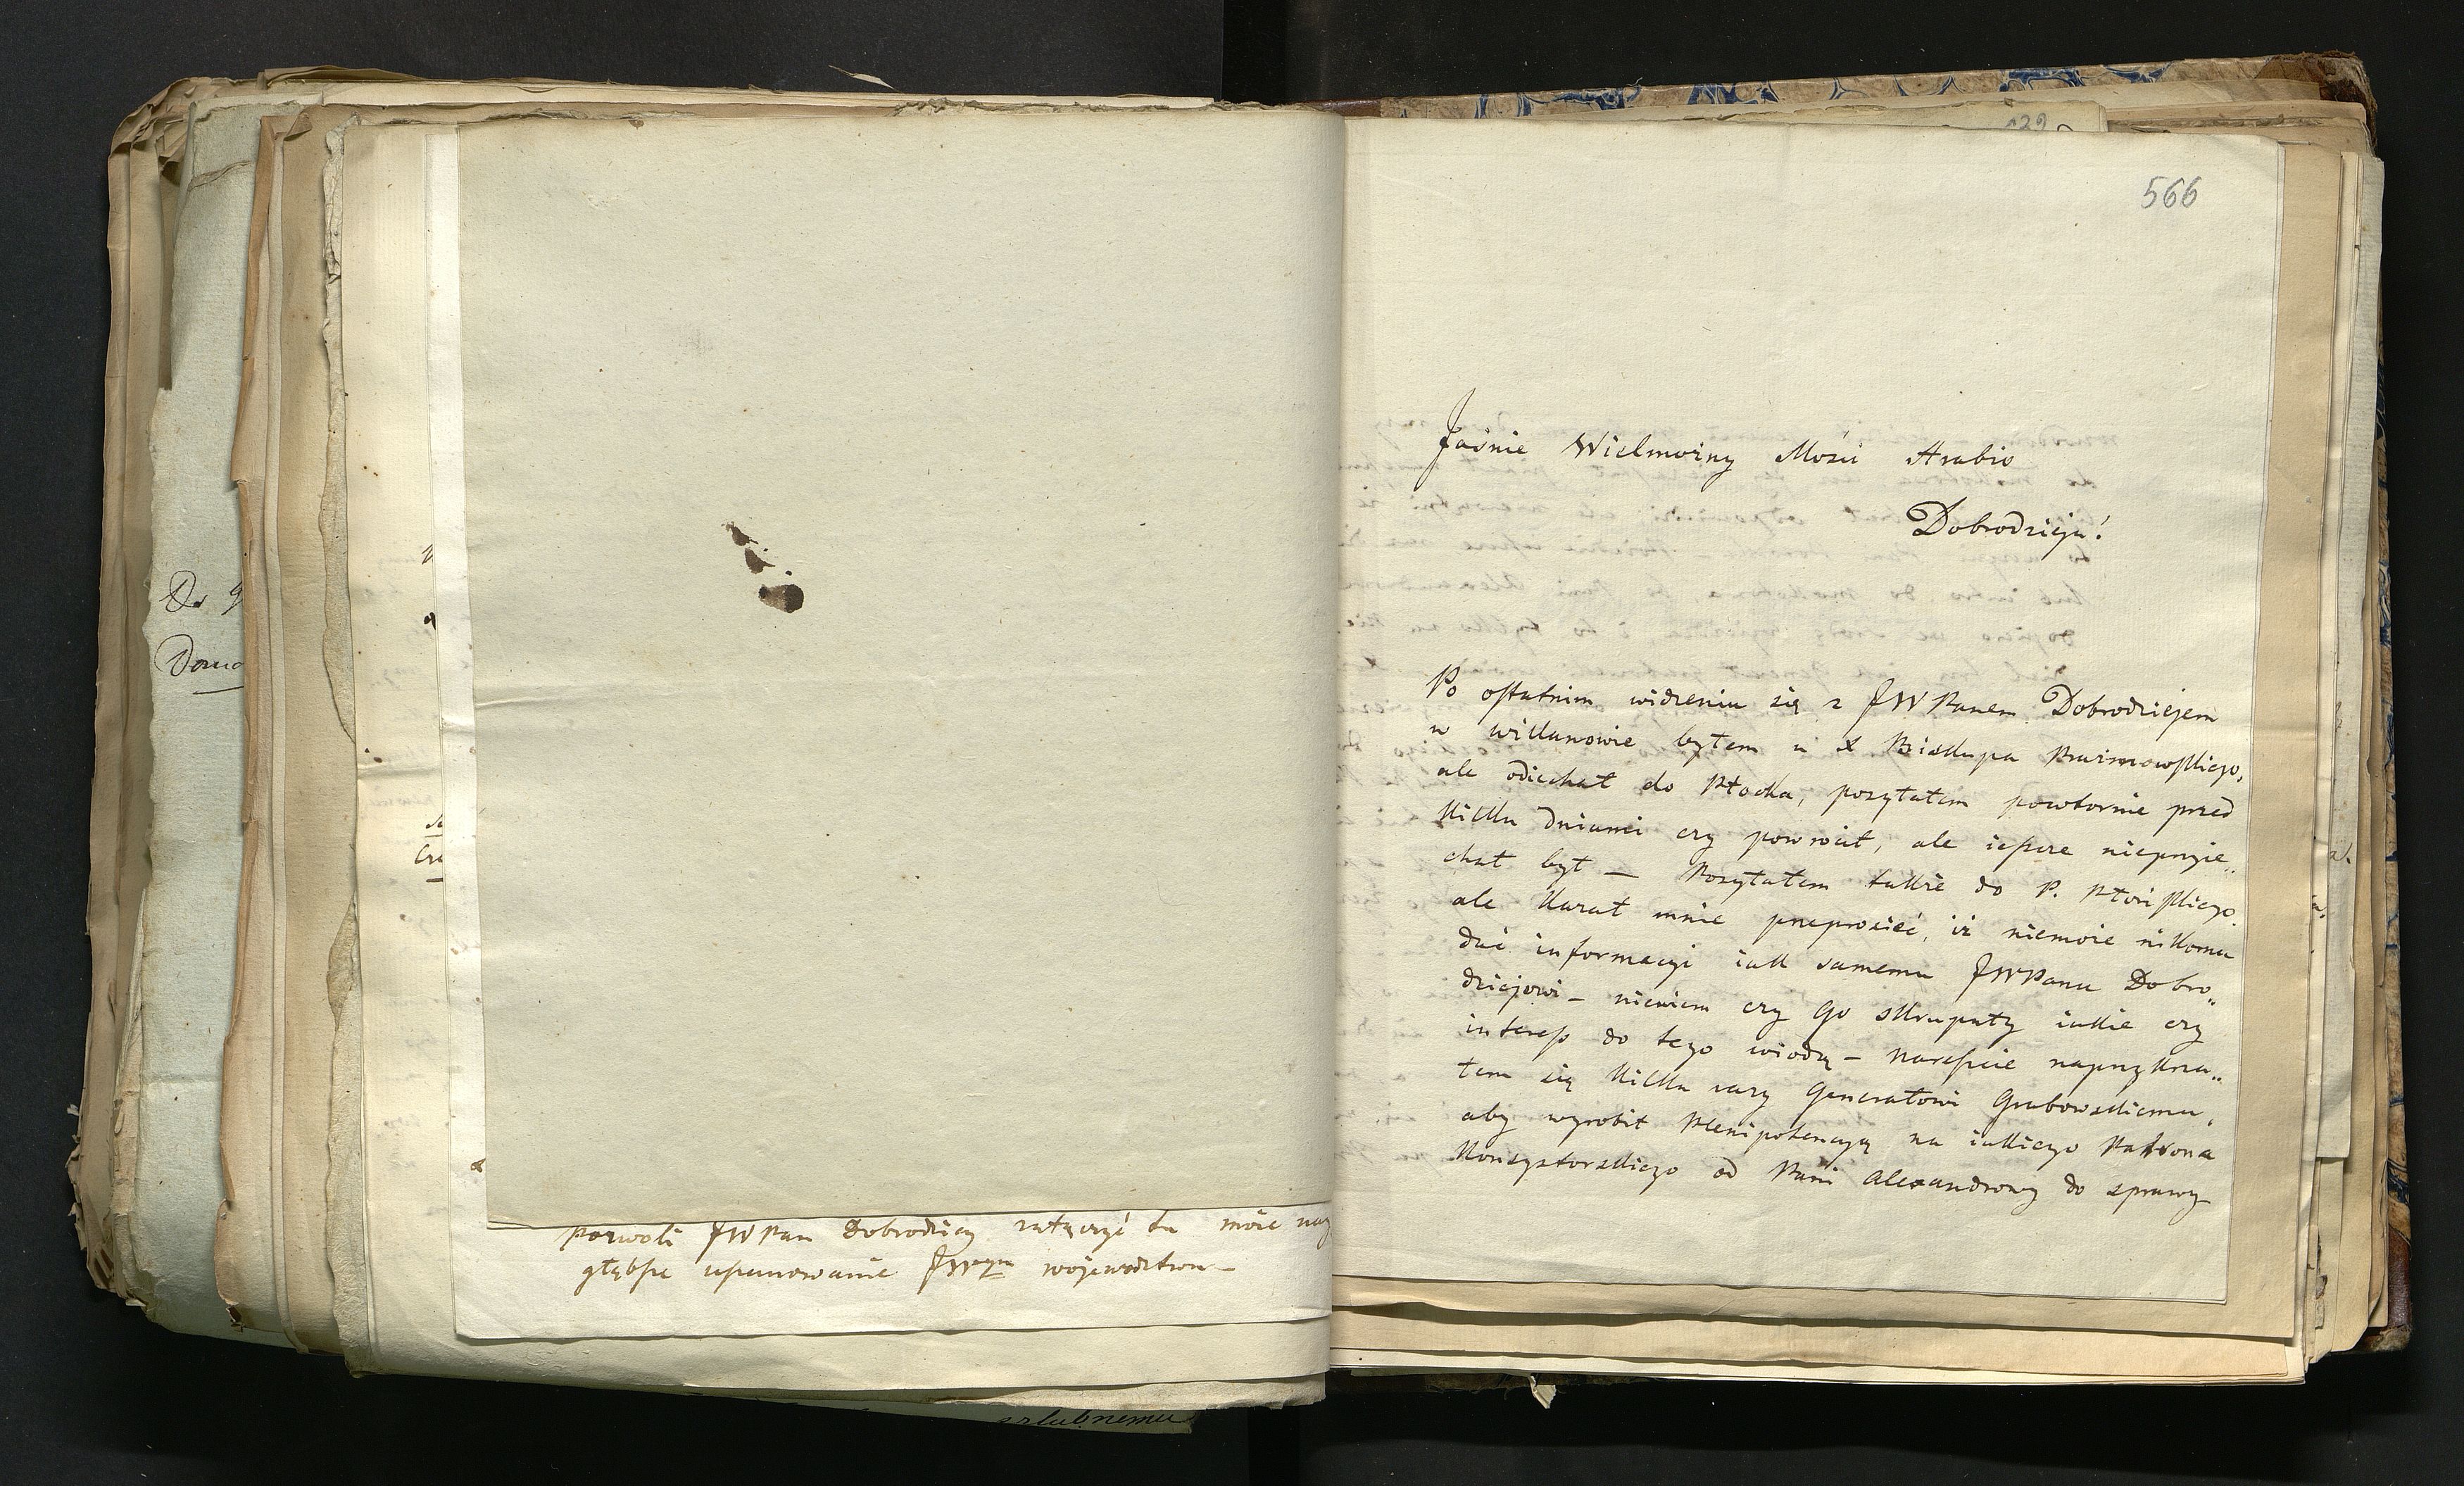 pozwoli JW Pan Dobrodziey załączyć tu moie nay
głębsze uszanowanie JWney Wojewodztwu
566
Jaśnie Wielmożny Mości Hrabio
Dobrodzieju!
Po ostatnim widzeniu się z JWPanem Dobrodziejem
w Willanowie byłem u X Biskupa Prażmowskiego,
ale odiechał do Płocka, posyłałem powtornie przed
kilku dniami czy powrocił, ale ieszcze nieprzyie„
chał był — Posyłałem także do P. Płoińskiego
ale kazał mnie przeprosić, iż niemoże nikomu
dać informacyi iak samemu JWPanu Dobro„
dziejowi — niewiem czy go skrupuły iakie czy
interess do tego wiodą — nareszcie naprzykrza„
łem się kilka razy Generałowi Grabowskiemu,
aby wyrobił Plenipotencyą na iakiego Patrona
Konsystorskiego od Pani Alexandrowy do sprawy